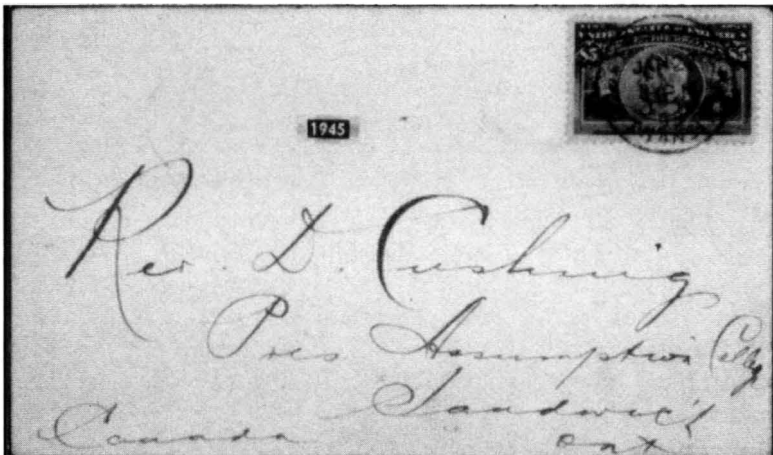 $5 $5
JAN 2
1945
Rev. D. Cushing
Pres Assumption Colleg
Sandwich
Canada Ont